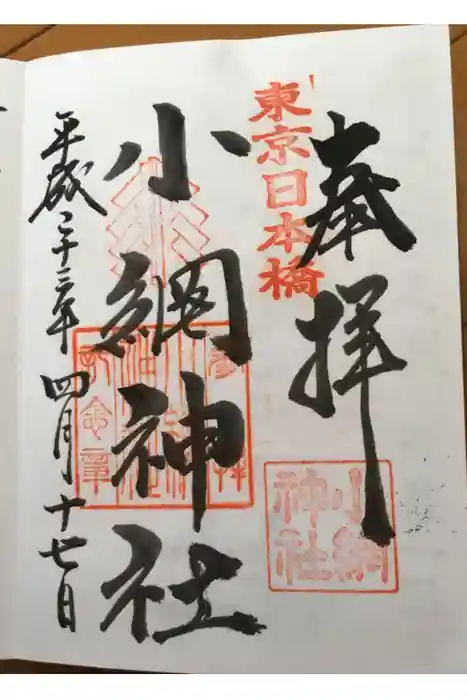 奉拝
東京日本橋
小網神社
小網
神社
平成二十三年四月十七日